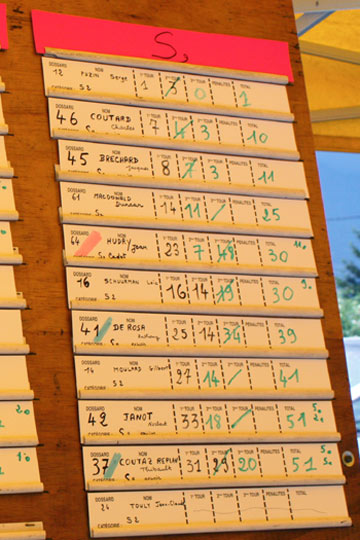 S2
DOSSARD NOM 1er TOUR 2ème TOUR 3ème TOUR PENALITES TOTAL
12 PUZIN Serge 1 3 0 1
CATEGORIE: S2
DOSSARD NOM 1er TOUR 2ème TOUR 3ème TOUR PENALITES TOTAL
46 COUTARD Charles 7 4 3 10
S2
DOSSARD NOM 1er TOUR 2ème TOUR 3ème TOUR PENALITES TOTAL
45 BRECHARD Jacques 8 7 3 11
S2
DOSSARD NOM 1er TOUR 2ème TOUR 3ème TOUR PENALITES TOTAL
61 MACDONALD Duncan 14 11 / 25
S2
DOSSARD NOM 1er TOUR 2ème TOUR 3ème TOUR PENALITES TOTAL
64 HUDRY Jean 23 7 48 30
S2 Cadet
DOSSARD NOM 1er TOUR 2ème TOUR 3ème TOUR PENALITES TOTAL
16 SCHUURMAN 16 14 19 30
S2
DOSSARD NOM 1er TOUR 2ème TOUR 3ème TOUR PENALITES TOTAL
41 DE ROSA Anthony 25 14 34 39
DOSSARD NOM 1er TOUR 2ème TOUR 3ème TOUR PENALITES TOTAL
14 MOULARD Gilbert 27 14 / 41
CATEGORIE: S2
DOSSARD NOM 1er TOUR 2ème TOUR 3ème TOUR PENALITES TOTAL
42 JANOT 33 18 / 51
DOSSARD NOM 1er TOUR 2ème TOUR 3ème TOUR PENALITES TOTAL
37 COUTAZ REPLAN Thibault 31 20 51
DOSSARD NOM 1er TOUR 2ème TOUR 3ème TOUR PENALITES TOTAL
24 TOULY Jean-Claude
CATEGORIE: S2